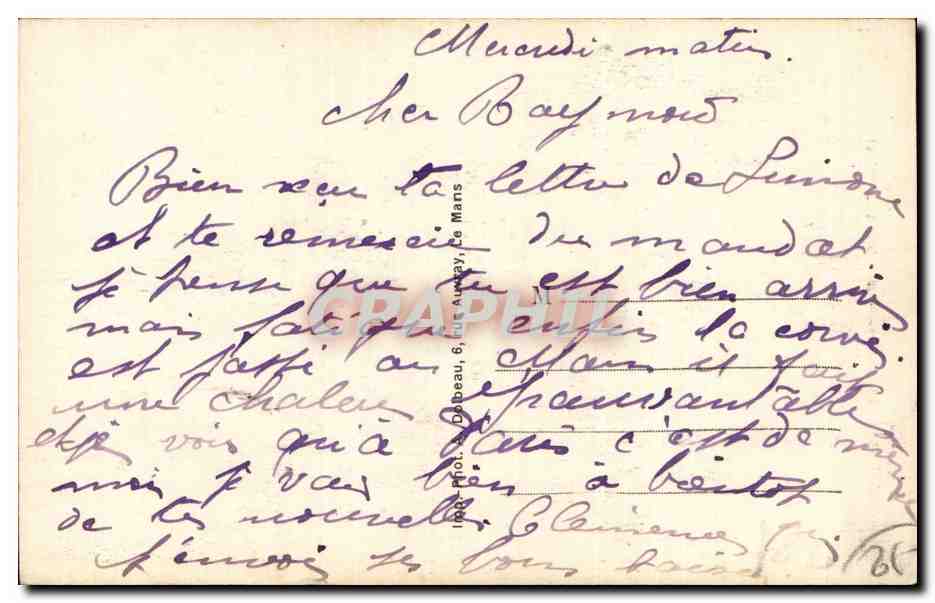 Mercredi matin.
Cher Raymond
Bien reçu ta lettre de Simone
et te remercie du mandat.
je pense que tu est bien arrivé
mais fatigué enfin la corvée
est passé au Mans il fait
une chaleur épauvantable
et je vois qu'à Paris c'est de même
moi je vais bien à bientot
de tes nouvelles Clémence qui
t'envoi ses bons baisers.
Imp. Phot. A. Dolbeau, 6, rue Auvray, Le Mans
CRAPHIL
M